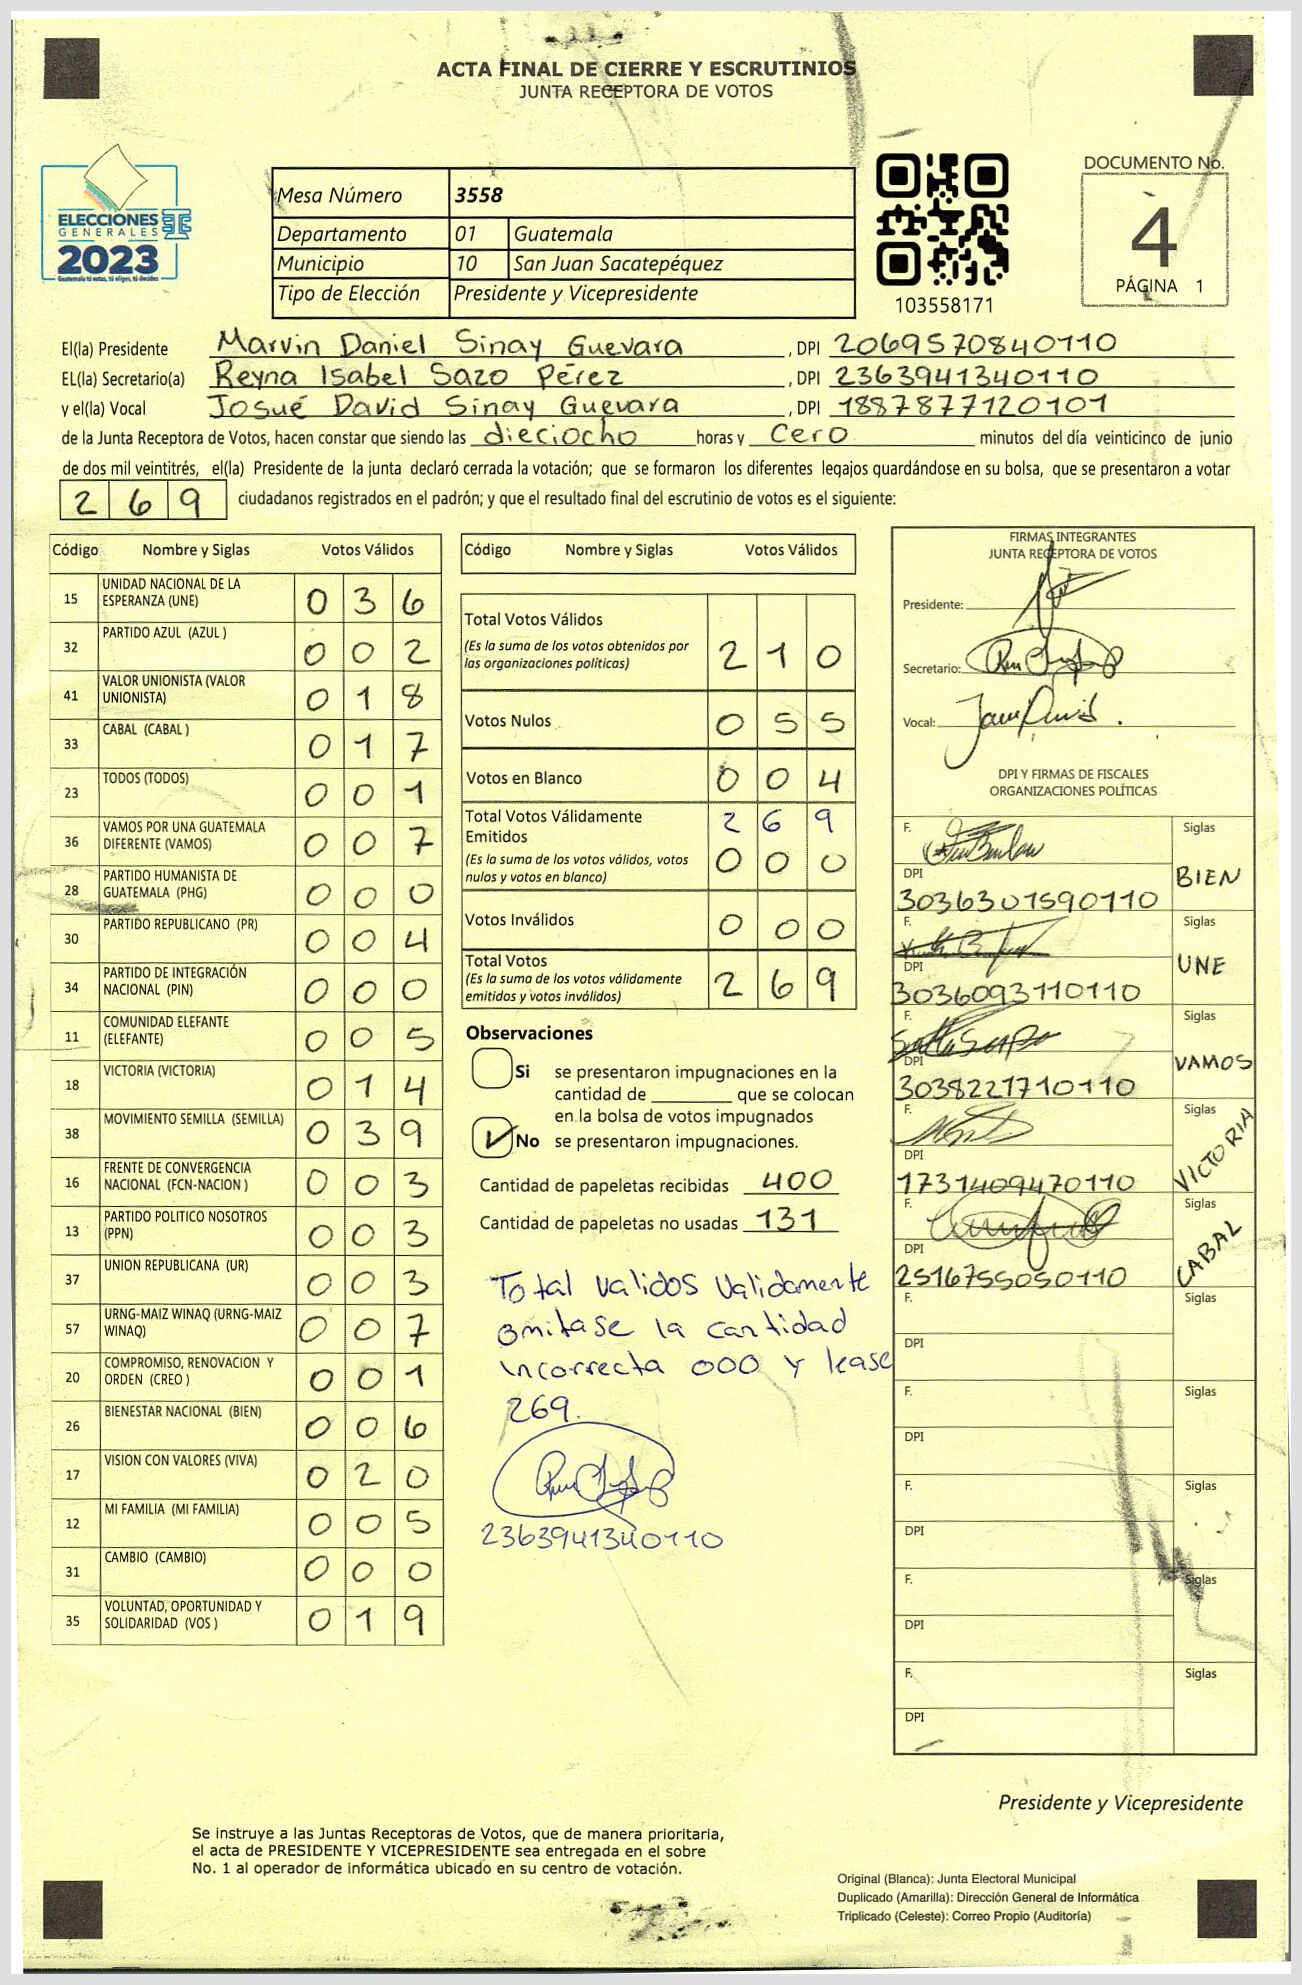 ACTA FINAL DE CIERRE Y ESCRUTINIOS
JUNTA RECEPTORA DE VOTOS
ELECCIONES
GENERALES
2023
Guatemala tú votas, tú eliges, tú decides
Mesa Número 3558
Departamento 01 Guatemala
Municipio 10 San Juan Sacatepéquez
Tipo de Elección Presidente y Vicepresidente
103558171
DOCUMENTO No.
4
PÁGINA 1
El(la) Presidente Marvin Daniel Sinay Guevara , DPI 2069570840110
EL(la) Secretario(a) Reyna Isabel Sazo Pérez , DPI 2363941340110
y el(la) Vocal Josué David Sinay Guevara , DPI 1887877120101
de la Junta Receptora de Votos, hacen constar que siendo las dieciocho horas y cero minutos del día veinticinco de junio
de dos mil veintitrés, el(la) Presidente de la junta declaró cerrada la votación; que se formaron los diferentes legajos guardándose en su bolsa, que se presentaron a votar
269 ciudadanos registrados en el padrón; y que el resultado final del escrutinio de votos es el siguiente:
Código Nombre y Siglas Votos Válidos
15 UNIDAD NACIONAL DE LA ESPERANZA (UNE) 0 3 6
32 PARTIDO AZUL (AZUL ) 0 0 2
41 VALOR UNIONISTA (VALOR UNIONISTA) 0 1 8
33 CABAL (CABAL ) 0 1 7
23 TODOS (TODOS) 0 0 1
36 VAMOS POR UNA GUATEMALA DIFERENTE (VAMOS) 0 0 7
28 PARTIDO HUMANISTA DE GUATEMALA (PHG) 0 0 0
30 PARTIDO REPUBLICANO (PR) 0 0 4
34 PARTIDO DE INTEGRACIÓN NACIONAL (PIN) 0 0 0
11 COMUNIDAD ELEFANTE (ELEFANTE) 0 0 5
18 VICTORIA (VICTORIA) 0 1 4
38 MOVIMIENTO SEMILLA (SEMILLA) 0 3 9
16 FRENTE DE CONVERGENCIA NACIONAL (FCN-NACION ) 0 0 3
13 PARTIDO POLITICO NOSOTROS (PPN) 0 0 3
37 UNION REPUBLICANA (UR) 0 0 3
57 URNG-MAIZ WINAQ (URNG-MAIZ WINAQ) 0 0 7
20 COMPROMISO, RENOVACION Y ORDEN (CREO ) 0 0 1
26 BIENESTAR NACIONAL (BIEN) 0 0 6
17 VISION CON VALORES (VIVA) 0 2 0
12 MI FAMILIA (MI FAMILIA) 0 0 5
31 CAMBIO (CAMBIO) 0 0 0
35 VOLUNTAD, OPORTUNIDAD Y SOLIDARIDAD (VOS ) 0 1 9
Código Nombre y Siglas Votos Válidos
Total Votos Válidos
(Es la suma de los votos obtenidos por
las organizaciones políticas) 2 1 0
Votos Nulos 0 5 5
Votos en Blanco 0 0 4
Total Votos Válidamente 2 6 9
Emitidos
(Es la suma de los votos válidos, votos 0 0 0
nulos y votos en blanco)
Votos Inválidos 0 0 0
Total Votos
(Es la suma de los votos válidamente
emitidos y votos inválidos) 2 6 9
Observaciones
Si se presentaron impugnaciones en la
cantidad de que se colocan
en la bolsa de votos impugnados
No se presentaron impugnaciones.
Cantidad de papeletas recibidas 400
Cantidad de papeletas no usadas 131
Total validos validamente
omitase la cantidad
incorrecta 000 y lease
269.
2363941340110
FIRMAS INTEGRANTES
JUNTA RECEPTORA DE VOTOS
Presidente:
Secretario:
Vocal:
DPI Y FIRMAS DE FISCALES
ORGANIZACIONES POLÍTICAS
F. Siglas
DPI BIEN
3036301590110
F. Siglas
DPI UNE
3036093110110
F. Siglas
DPI VAMOS
3038221710110
F. Siglas
DPI VICTORIA
1731409470110
F. Siglas
DPI CABAL
2516755050110
F. Siglas
DPI
F. Siglas
DPI
F. Siglas
DPI
F. Siglas
DPI
F. Siglas
DPI
Presidente y Vicepresidente
Se instruye a las Juntas Receptoras de Votos, que de manera prioritaria,
el acta de PRESIDENTE Y VICEPRESIDENTE sea entregada en el sobre
No. 1 al operador de informática ubicado en su centro de votación.
Original (Blanca): Junta Electoral Municipal
Duplicado (Amarilla): Dirección General de Informática
Triplicado (Celeste): Correo Propio (Auditoría)